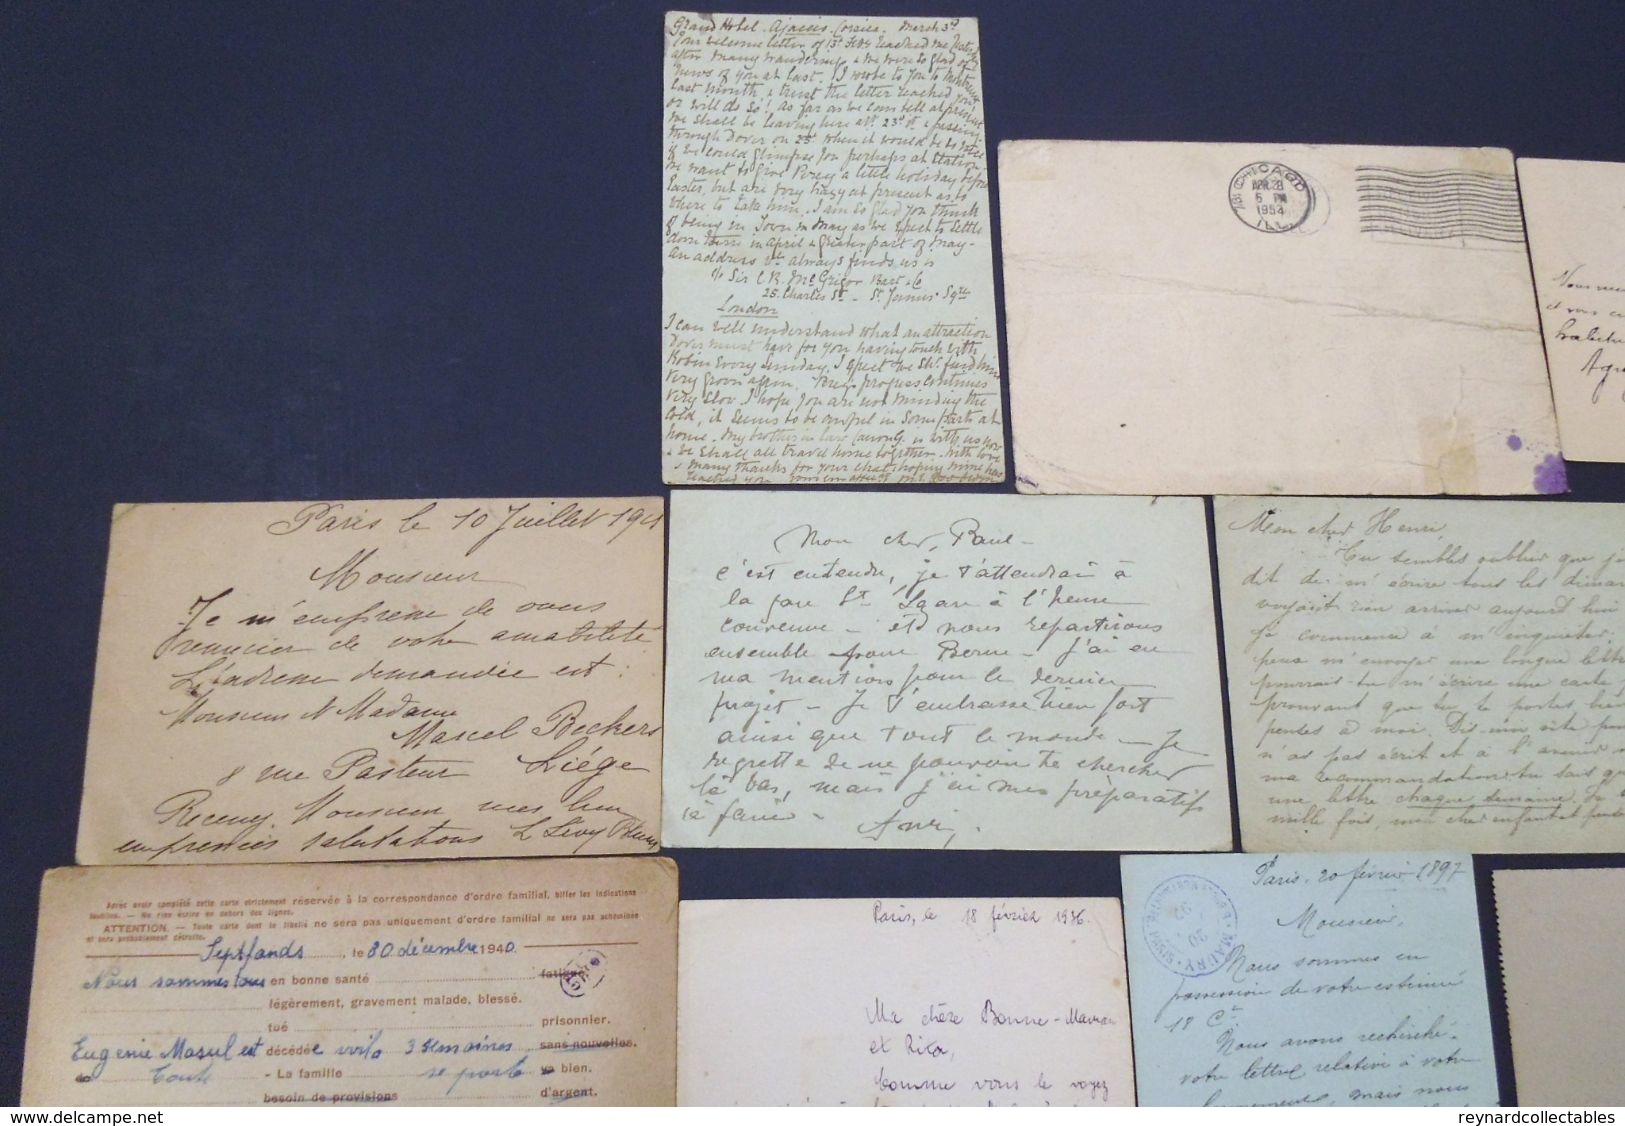 Grand Hotel. Ajaccio. Corsica. March 3rd
Your welcome letter of 13th Feby reached me
after many wanderings & we were so glad of
news of you at last. I wrote to you to
last month & trust the letter reached you
or will do so! As far as we can tell at present
we shall be leaving here abt 23rd & passing
through Dover on 25th when it would be so nice
if we could glimpse you perhaps at station
we want to give Percy a little holiday before
Easter, but are very hazy at present as to
where to take him. I am so glad you think
of being in Town in May as we expect to settle
down there in April & greater part of May-
An address wh always finds us is
c/o Sir C.R. McGrigor Bart & Co
25. Charles St - St James' Sqre
London
I can well understand what an attraction
Dover must have for you having touch with
Robin every Sunday, I expect we shl find him
very grown again. progress continues
very slow I hope you are not minding the
cold, it seems to be awful in some parts at
home. My brother in law is with us now
& we shall all travel home together. With love
& many thanks for your chat hoping mine has
reached you
CHICAGO
APR 28
6 PM
1954
ILL.
Vous
et vous
Paris le 10 Juillet 1911
Monsieur
Je m'empresse de vous
remercier de votre amabilité
L'adresse demandée est :
Monsieur et Madame
Marcel Beckers
8 rue Pasteur Liége
Recevez Monsieur mes bien
empressées salutations L Lévy
Mon cher Paul -
c'est entendu, je t'attendrai à
la gare St. Lazare à l'heure
convenue - et nous repartirons
ensemble pour Berne - J'ai eu
ma mention pour le dernier
projet - Je t'embrasse bien fort
ainsi que tout le monde - Je
regrette de ne pouvoir te chercher
là bas, mais j'ai mes préparatifs
à faire -
Mon cher Henri,
Tu sembles oublier que j
dit de m'écrire tous les diman
voyant rien arriver aujourd'hui
je commence à m'inquiéter.
peux m'envoyer une longue lettre
pourrais-tu m'écrire une carte
prouvant que tu te portes bien
penses à moi. Dis-moi vite pour
n'as pas écrit et à l'avenir
ma recommandation tu sais qu
une lettre chaque semaine.
mille fois, mon cher enfant et
Après avoir complété cette carte strictement réservée à la correspondance d'ordre familial, biffer les indications
inutiles. — Ne rien écrire en dehors des lignes.
ATTENTION. — Toute carte dont le libellé ne sera pas uniquement d'ordre familial ne sera pas acheminée
et sera probablement détruite.
Septfonds, le 30 décembre 1940
Nous sommes tous en bonne santé fatigué.
légèrement, gravement malade, blessé.
tué prisonnier.
Eugenie Masul est décédée voilà 3 semaines sans nouvelles.
Toute - La famille se porte va bien.
besoin de provisions d'argent.
Paris, le 18 février 1936.
Ma chère Bonne-Maman
et Rita,
Comme vous le voyez
MAURY
Paris, 20 février 1897
Monsieur,
Nous sommes en
possession de votre estimée
18 Ct.
Nous avons recherché
votre lettre relative à votre
mais nous
reynardcollectables